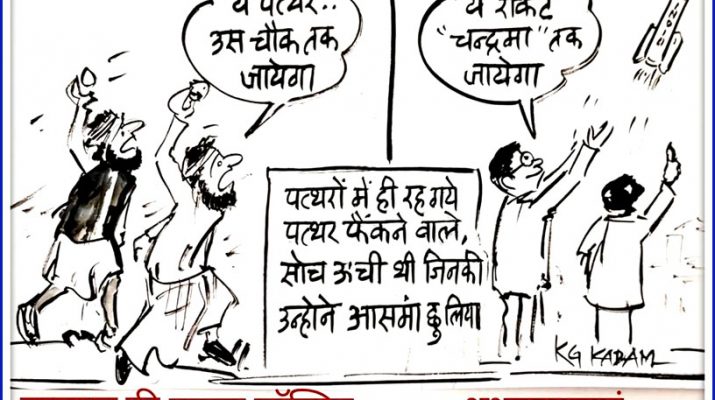 ये पत्थर..
उस चौक तक
जायेगा
ये रॉकेट
"चन्द्रमा" तक
जायेगा
पत्थरों में ही रह गये
पत्थर फैंकने वाले,
सोच ऊंची थी जिनकी
उन्होने आसमां छु लिया
KG KADAM